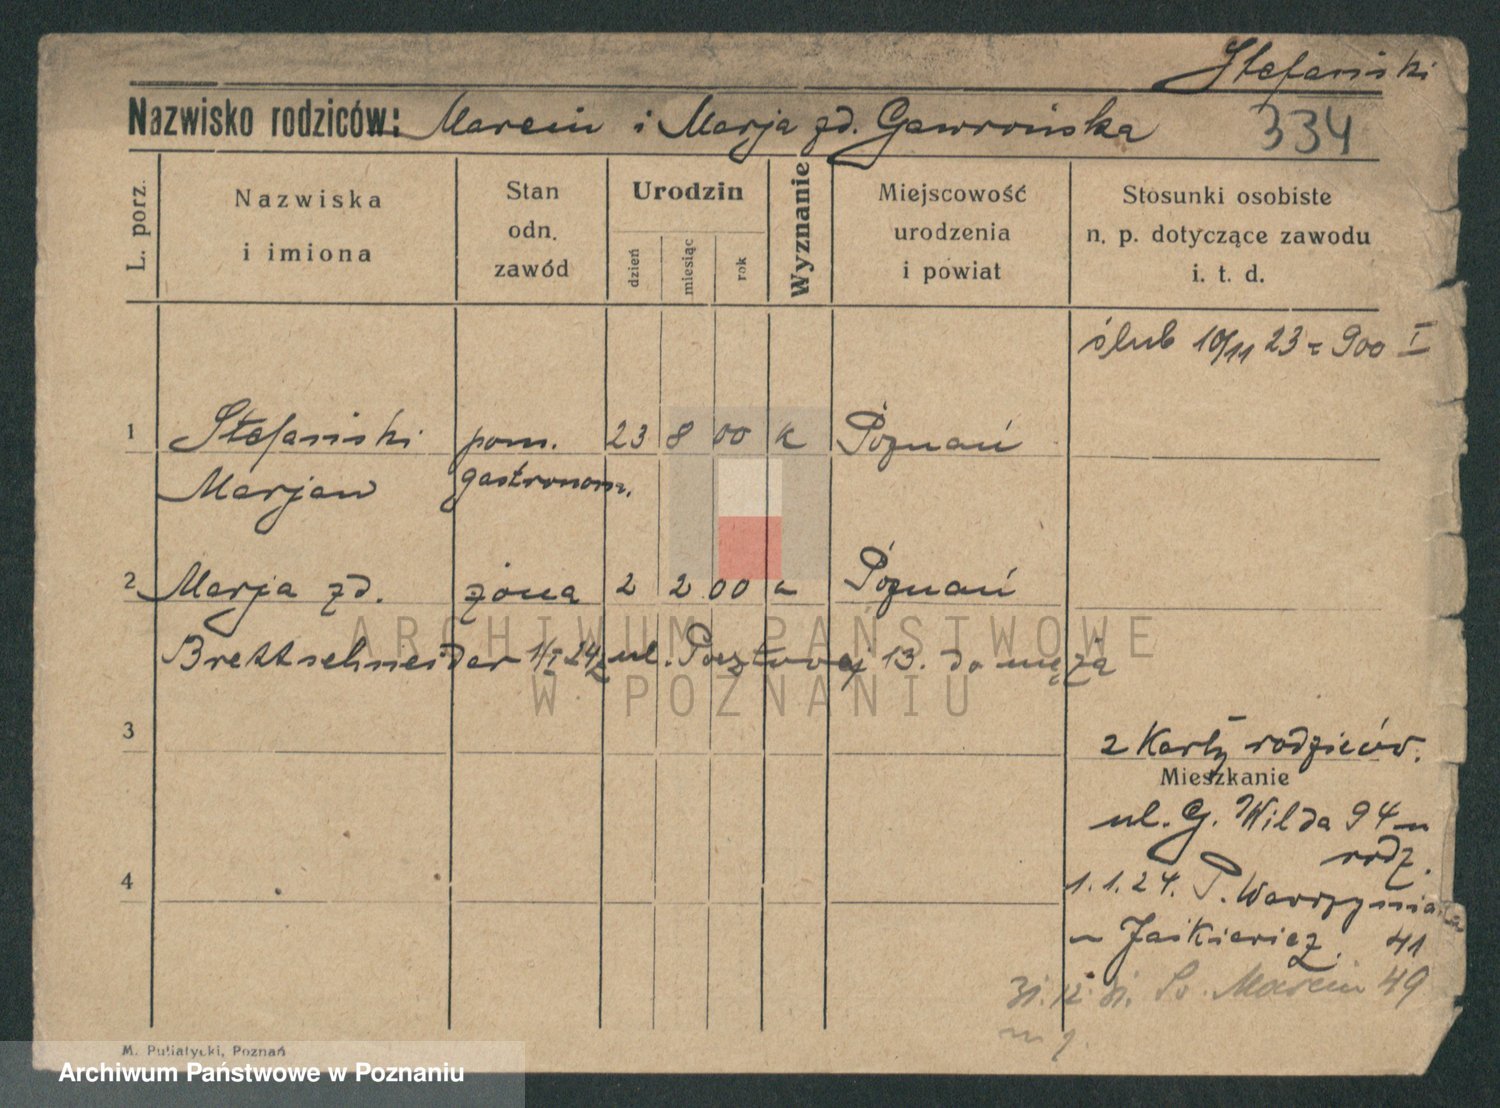 Stefański
Nazwisko rodziców: Marcin i Marja zd. Gawrońska 334
L. porz.
Nazwiska
i imiona
Stan
odn.
zawód
Urodzin
dzień
miesiąc
rok
Wyznanie
Miejscowość
urodzenia
i powiat
Stosunki osobiste
n. p. dotyczące zawodu
i. t. d.
ślub 10/11 23 = 900 I
1 Stefański pom. 23 8 00 k Poznań
Marjan gastronom.
2 Marja zd. żona 2 2 00 Poznań
Brettschneider 1/I 24 z ul. Pocztowej 13. do męża
3
2 Karty rodziców.
Mieszkanie
ul. G. Wilda 94
rodz.
4
1.1.24. P. Wawrzyniaka
Jaśkiewicz. 41
31.12.31. Św. Marcin 49
M. Putiatycki, Poznań
ARCHIWUM PAŃSTWOWE
W POZNANIU
Archiwum Państwowe w Poznaniu